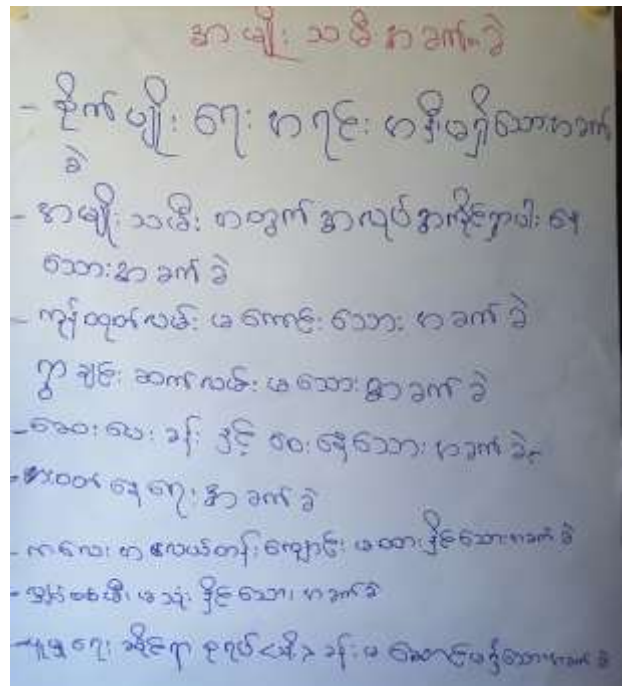 အာမျိုး သမီ အခက်ခဲ
- စိုက်ပျိုး ရေး အရင်း အနှီးမရှိသောအခက်
ခဲ
- အာမျိုး သမီး အတွက် အာလုပ်အာကိုင်ရှာပါး နေ
သောအာခက် ခဲ
- ကုန်ထုတ်လမ်း မကောင်း သော အခက် ခဲ
ရွာချင်း ဆက်လမ်း မသောအာခက် ခဲ
- ဆေးပေး ခန်း နှင့် ဝေးနေသော အခက် ခဲ
- စားဝတ်နေရေး အာခက် ခဲ
- ကလေး အလယ်တန်း ကျောင်း မထားနိုင်သောအခက် ခဲ
- မသုံး နိုင်သော အခက်ခဲ
- လူမှုရေး ဆိုင်ရာ မဆောင်မရှိသောအခက် ခဲ